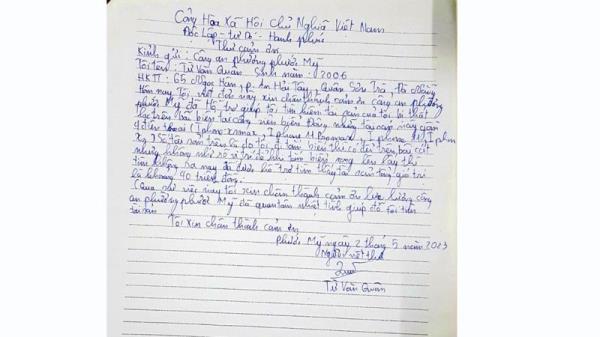 Cộng Hòa Xã Hội Chủ Nghĩa Việt Nam
Độc Lập - Tự Do - Hạnh phúc
Thư cảm ơn
Kính gửi: Công an phường phước Mỹ
Tôi tên: Từ Văn Quân Sinh năm: 2006
HKTT: 65 Ngọc Hân, p. An Hải Tây, Quận Sơn Trà, Đà Nẵng
Hôm nay Tôi viết thư này xin chân thành cảm ơn công an phường
phước Mỹ đã Hỗ trợ giúp tôi tìm kiếm tài sản của tôi bị thất
lạc trên bãi biển tại công viên biển Đông những tài sản này gồm
4 điện thoại (Iphone xsmax, Iphone 11 Promax, Iphone 11, Iphone
Xs) Số tài sản trên là do tôi đi tắm biển thì có để trên bãi cát
nhưng không nhớ rõ vị trí để khi tắm biển xong lên lấy thì
tìm không ra nay đã được hỗ trợ tìm thấy tài sản trên, giá trị
là khoảng 40 triệu đồng.
Qua sự việc này tôi xin chân thành cảm ơn lực lượng công
an phường phước Mỹ đã quan tâm nhiệt tình giúp đỡ tôi tìm
tài sản
Tôi xin chân thành cảm ơn
phước Mỹ ngày 2 tháng 5 năm 2023
Người viết thư
Quân
Từ Văn Quân